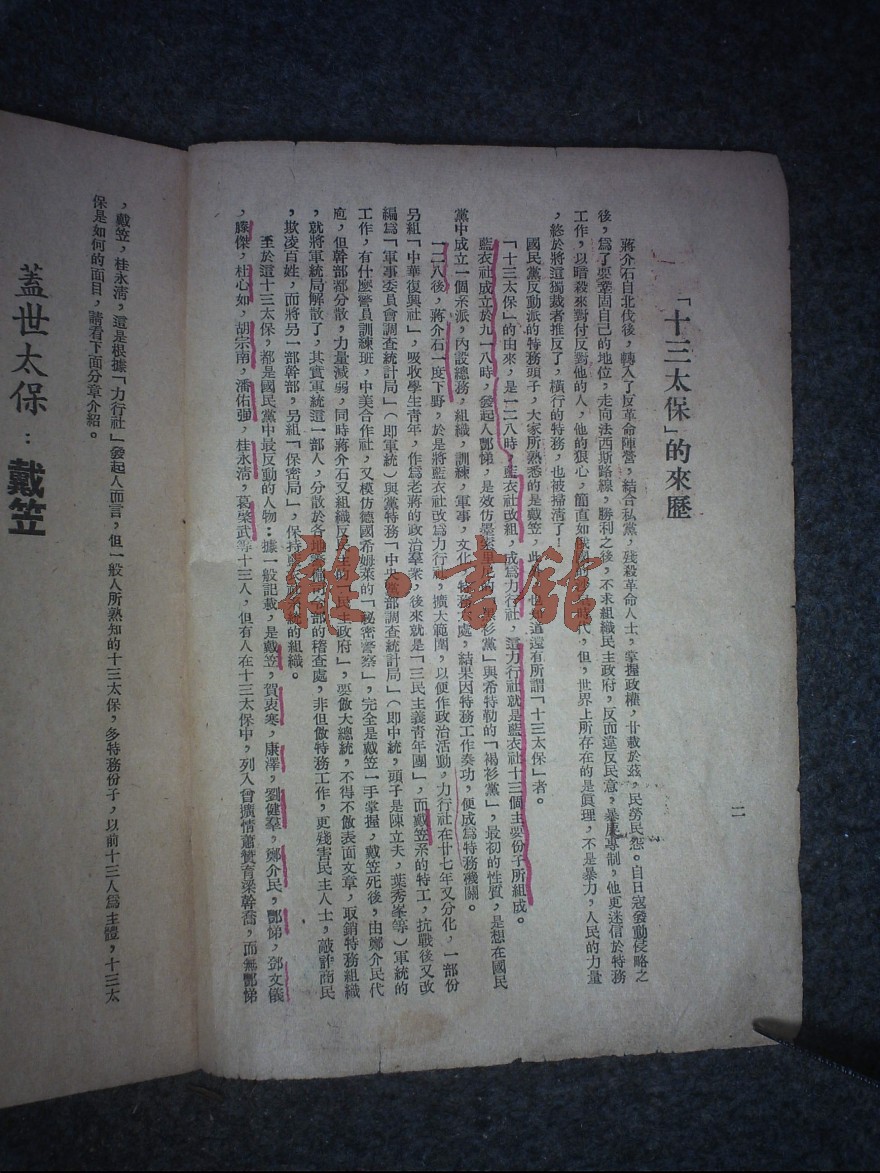 二
「十三太保」的來歷
蔣介石自北伐後，轉入了反革命陣營，結合私黨，殘殺革命人士，掌握政權，廿載於茲，民勞民怨。自日寇發動侵略之
後，爲了要鞏固自己的地位，走向法西斯路線，勝利之後，不求組織民主政府，反而違反民意，暴戾專制，他更迷信於特務
工作，以暗殺來對付反對他的人，他的狠心，簡直如俄國的 時代，但，世界上所存在的是眞理，不是暴力，人民的力量
，終於將這獨裁者推反了，橫行的特務，也被掃淸了！
國民黨反動派的特務頭子，大家所熟悉的是戴笠，此 也知道還有所謂「十三太保」者。
「十三太保」的由來，是一二八時，藍衣社改組，成爲力行社，這力行社就是藍衣社十三個主要份子所組成。
藍衣社成立於九一八時，發起人酆悌，是效仿墨索里尼的「黑衫黨」與希特勒的「褐衫黨」，最初的性質，是想在國民
黨中成立一個系派，內設總務，組織，訓練，軍事，文化，特務六處，結果因特務工作奏功，便成爲特務機關。
一二八後，蔣介石一度下野，於是將藍衣社改爲力行社，擴大範圍，以便作政治活動，力行社在廿七年又分化，一部份
另組「中華復興社」，吸收學生靑年，作爲老蔣的政治羣衆，後來就是「三民主義靑年團」，而戴笠系的特工，抗戰後又改
編爲「軍事委員會調查統計局」（卽軍統）與黨特務「中央黨部調查統計局」（卽中統，頭子是陳立夫，葉秀峯等）軍統的
工作，有什麼警員訓練班，中美合作社，又模仿德國希姆萊的「秘密警察」，完全是戴笠一手掌握，戴笠死後，由鄭介民代
庖，但幹部都分散，力量減弱，同時蔣介石又組織反民主的「民主政府」，要做大總統，不得不做表面文章，取銷特務組織
，就將軍統局解散了，其實軍統這一部人，分散於各地 司令部的稽查處，非但做特務工作，更殘害民主人士，敲詐商民
，欺凌百姓，而將另一部幹部，另組「保密局」，保持 統的組織。
至於這十三太保，都是國民黨中最反動的人物：據一般記載，是戴笠，賀衷寒，康澤，劉健羣，鄭介民，酆悌，鄧文儀
，滕傑，杜心如，胡宗南，潘佑强，桂永淸，葛榮武等十三人，但有人在十三太保中，列入曾擴情蕭贊育梁幹喬，而無酆悌
，戴笠，桂永淸，這是根據「力行社」發起人而言，但一般人所熟知的十三太保，多特務份子，以前十三人爲主體，十三太
保是如何的面目，請看下面分章介紹。
蓋世太保：戴笠
雜·書館